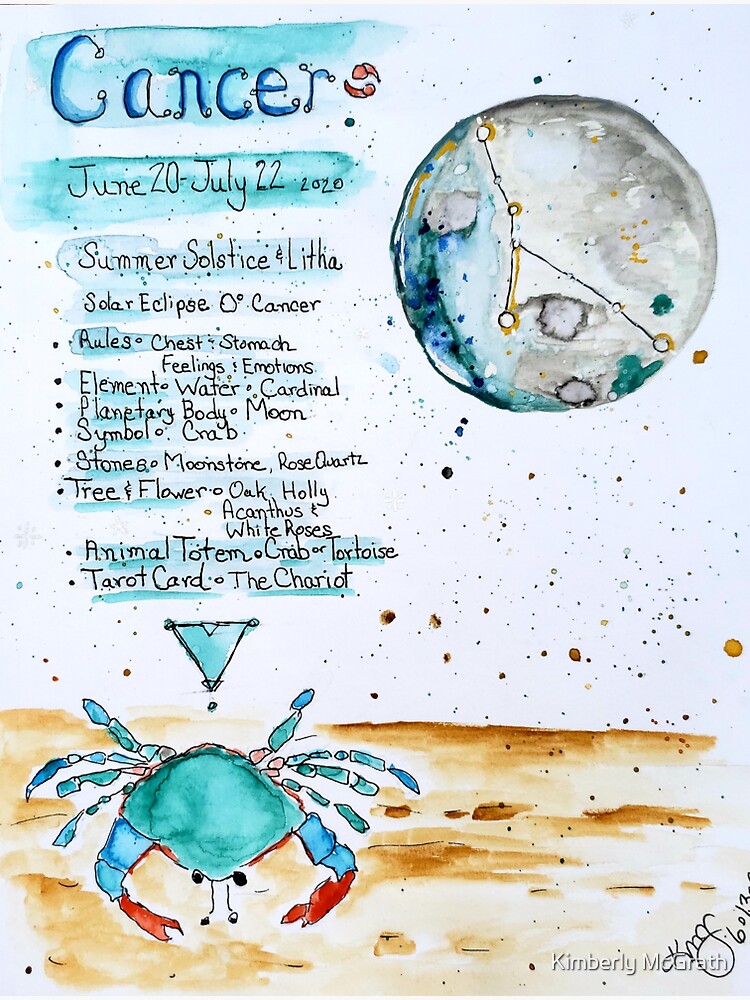 Cancer
June 20-July 22 2020
Summer Solstice & Litha
Solar Eclipse 0° Cancer
• Rules • Chest & Stomach
Feelings & Emotions
• Element • Water • Cardinal
• Planetary Body • Moon
• Symbol • Crab
• Stones • Moonstone, Rose Quartz
• Tree & Flower • Oak, Holly
Acanthus &
White Roses
• Animal Totem • Crab or Tortoise
• Tarot Card • The Chariot
Kimberly McGrath